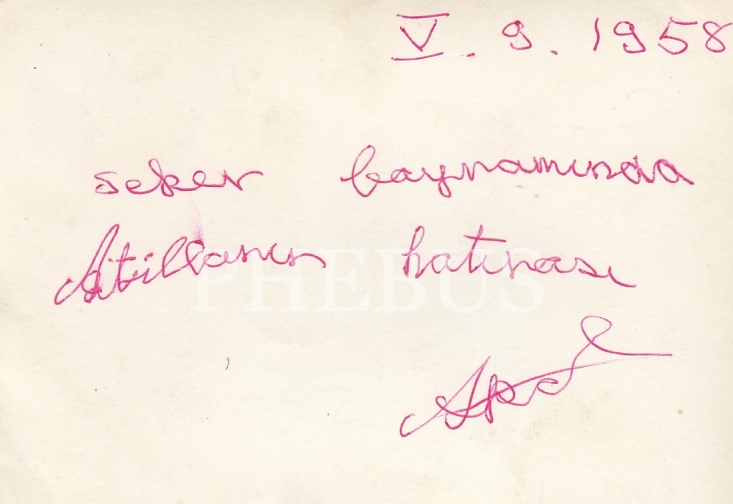 V. 9. 1958
seker bayramında
Atillanın hatırası
PHEBUS